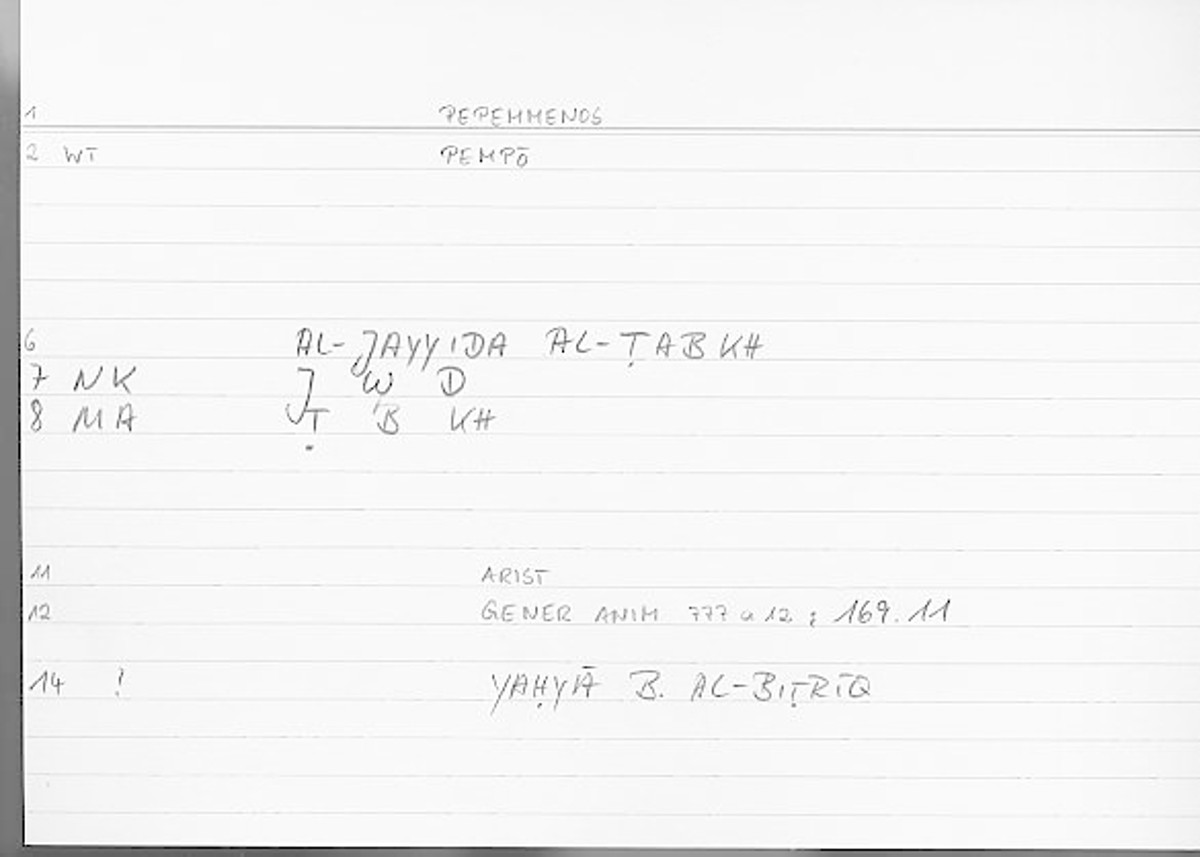 1 PEPEMMENOS
2 WT PEMPŌ
6 AL-JAYYIDA AL-ṬABKH
7 NK J W D
8 MA Ṭ B KH
11 ARIST
12 GENER ANIM 777 a 12 ; 169.11
14 ! YAḤYĀ B. AL-BIṬRĪQ